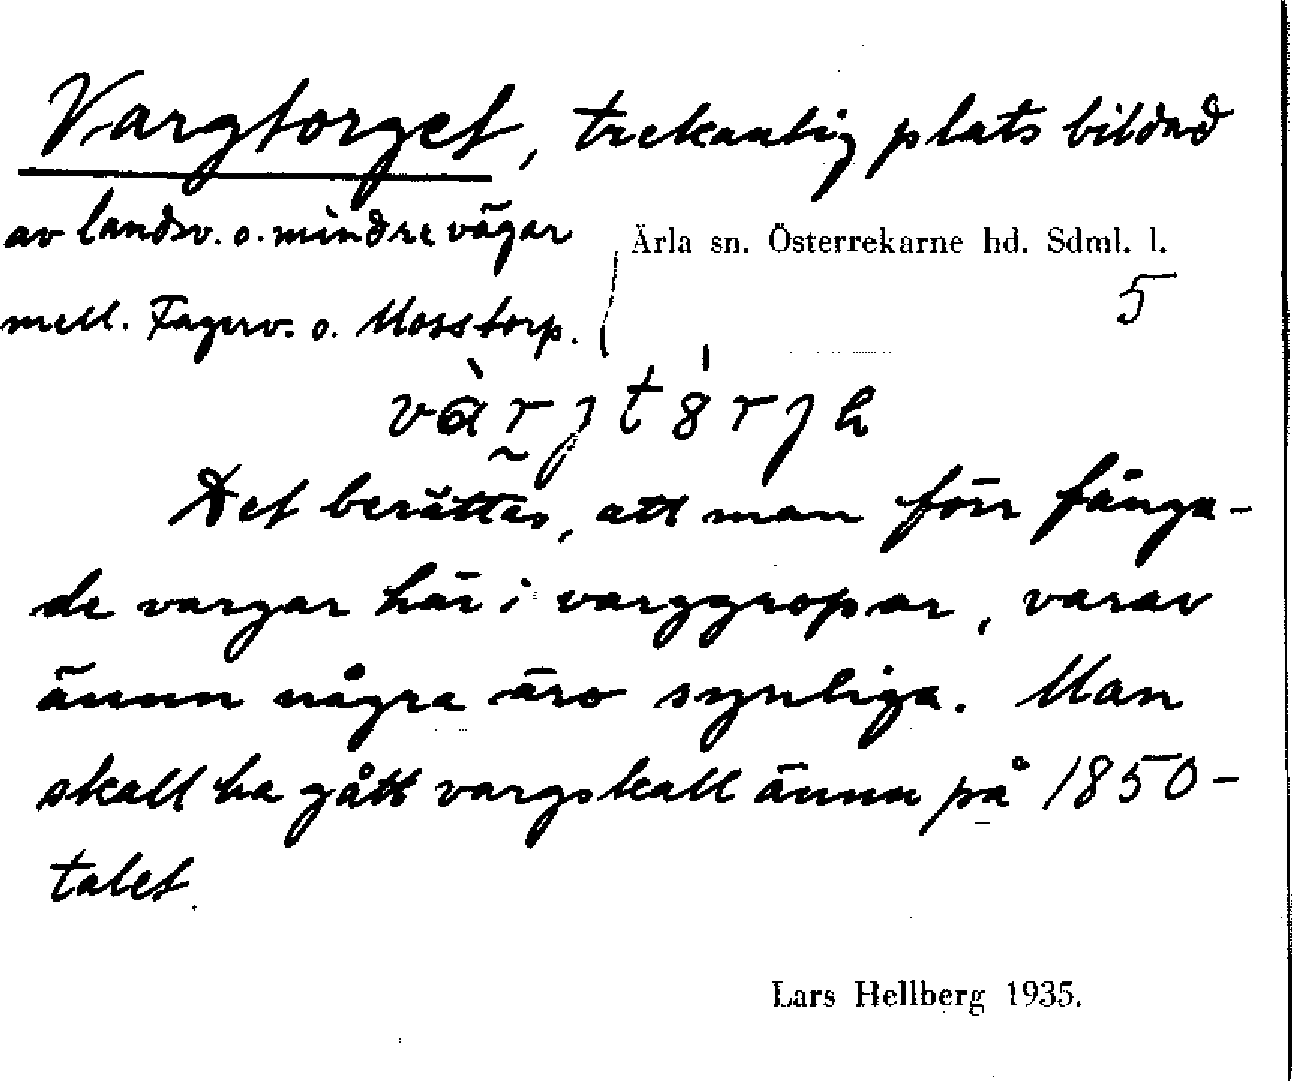 Vargtorget, trekantig plats bildad
av landsv. o. mindre vägar
Ärla sn. Österrekarne hd. Sdml. l.
mell. Fagerv. o. Mosstorp.
5
Det berättas, att man förr fånga-
de vargar här i varggropar, varav
ännu några äro synliga. Man
skall ha gått vargskall ännu på 1850-
talet.
Lars Hellberg 1935.